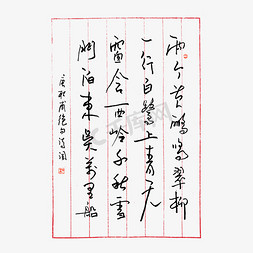 两个黄鹂鸣翠柳
一行白鹭上青天
窗含西岭千秋雪
门泊東吴萬里船
杜甫绝句